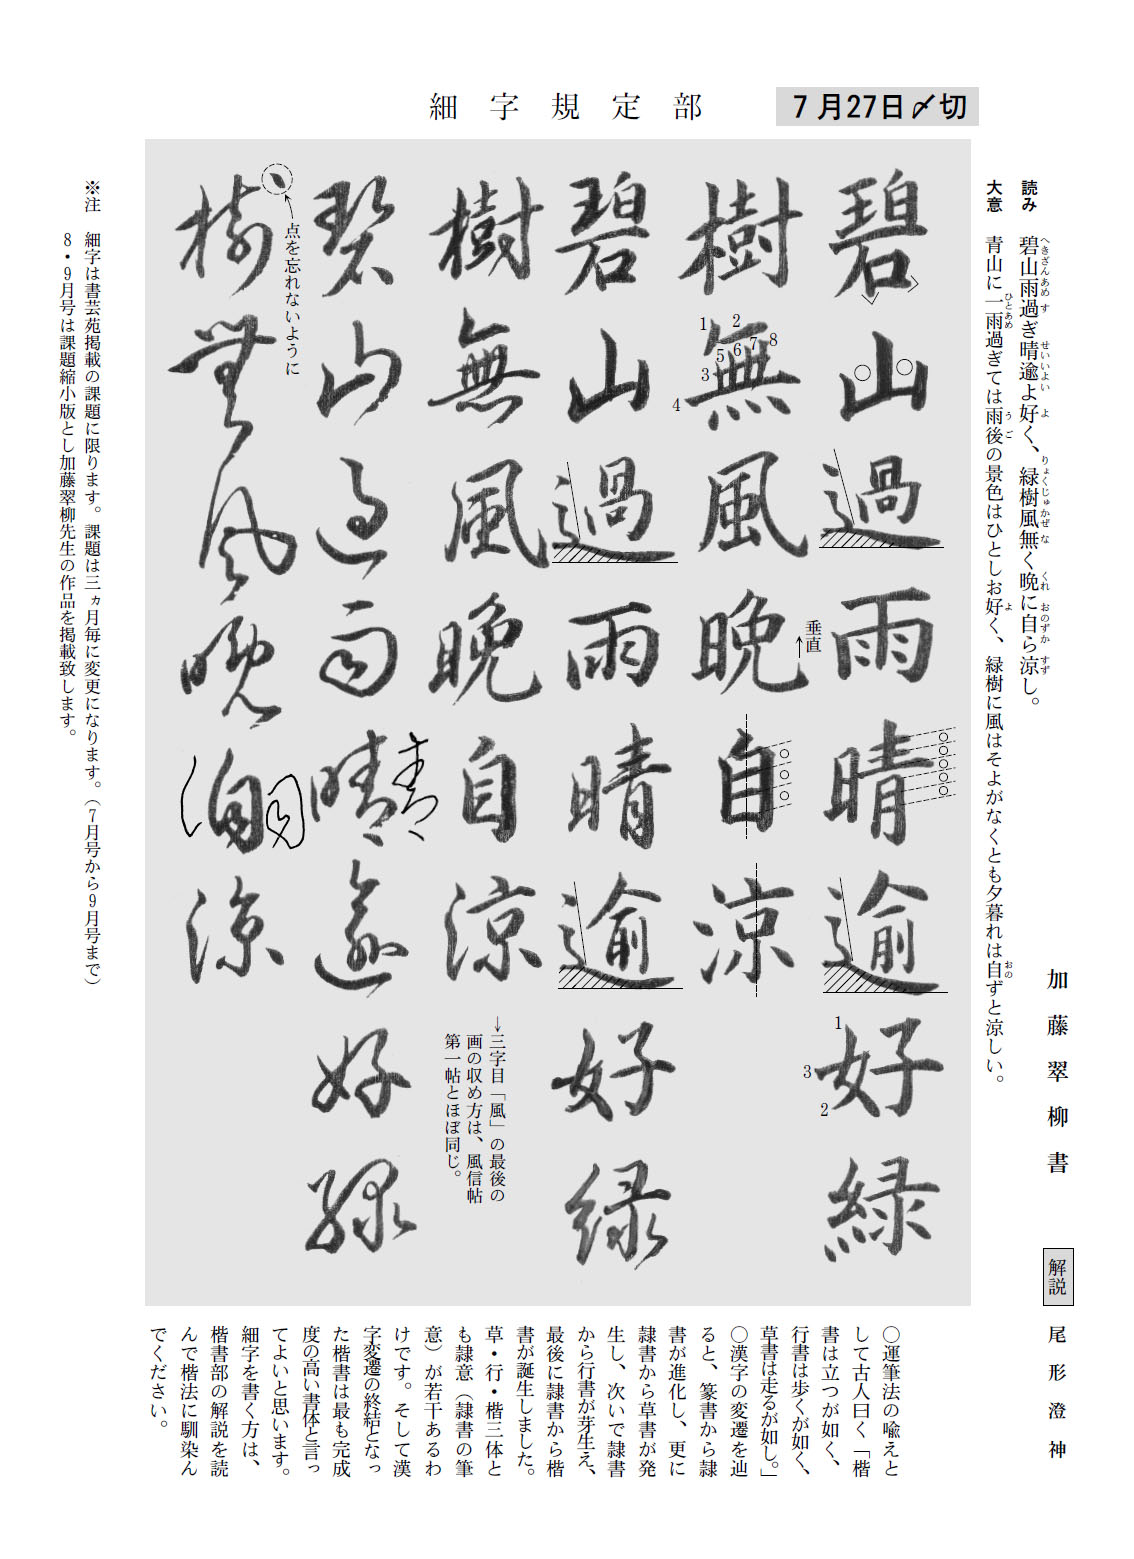 細字規定部
7月27日〆切
読み 碧山雨過ぎ晴逾よ好く、緑樹風無く晩に自ら涼し。
へきざんあめ す せいいよい よ りょくじゅかぜ な くれ おのずか すず
大意 青山に一雨過ぎては雨後の景色はひとしお好く、緑樹に風はそよがなくとも夕暮れは自ずと涼しい。
ひとあめ うご よ おの
加藤翠柳書
碧山過雨晴逾好緑
1
3
2
樹無風晩自涼
1
2
3
4
5
6
7
8
垂直
碧山過雨晴逾好緑
樹無風晩自涼
↓三字目「風」の最後の
画の収め方は、風信帖
第一帖とほぼ同じ。
碧山過雨晴逾好緑
樹無風晩自涼
点を忘れないように
※注 細字は書芸苑掲載の課題に限ります。課題は三ヵ月毎に変更になります。(7月号から9月号まで)
8・9月号は課題縮小版とし加藤翠柳先生の作品を掲載致します。
解説 尾形澄神
○運筆法の喩えと
して古人曰く「楷
書は立つが如く、
行書は歩くが如く、
草書は走るが如し。」
○漢字の変遷を辿
ると、篆書から隷
書が進化し、更に
隷書から草書が発
生し、次いで隷書
から行書が芽生え、
最後に隷書から楷
書が誕生しました。
草・行・楷三体と
も隷意(隷書の筆
意)が若干あるわ
けです。そして漢
字変遷の終結となっ
た楷書は最も完成
度の高い書体と言っ
てよいと思います。
細字を書く方は、
楷書部の解説を読
んで楷法に馴染ん
でください。